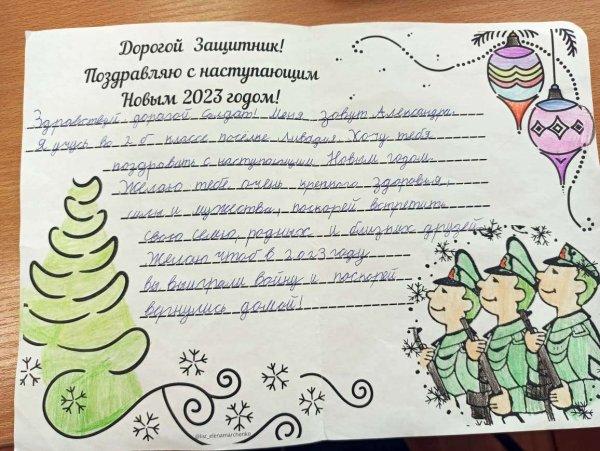 Дорогой Защитник!
Поздравляю с наступающим
Новым 2023 годом!
Здравствуй дорогой Солдат! Меня зовут Александра.
Я учусь во 2 "б" классе поселке Ливадия. Хочу тебя
поздравить с наступающим Новым годом.
Желаю тебе очень крепкого здоровья,
силы и мужества, поскорей встретить
свою семью, родных и близких друзей.
Желаю чтоб в 2023 году
вы выиграли войну и поскорей
вернулись домой!
@list_elenamarchenko